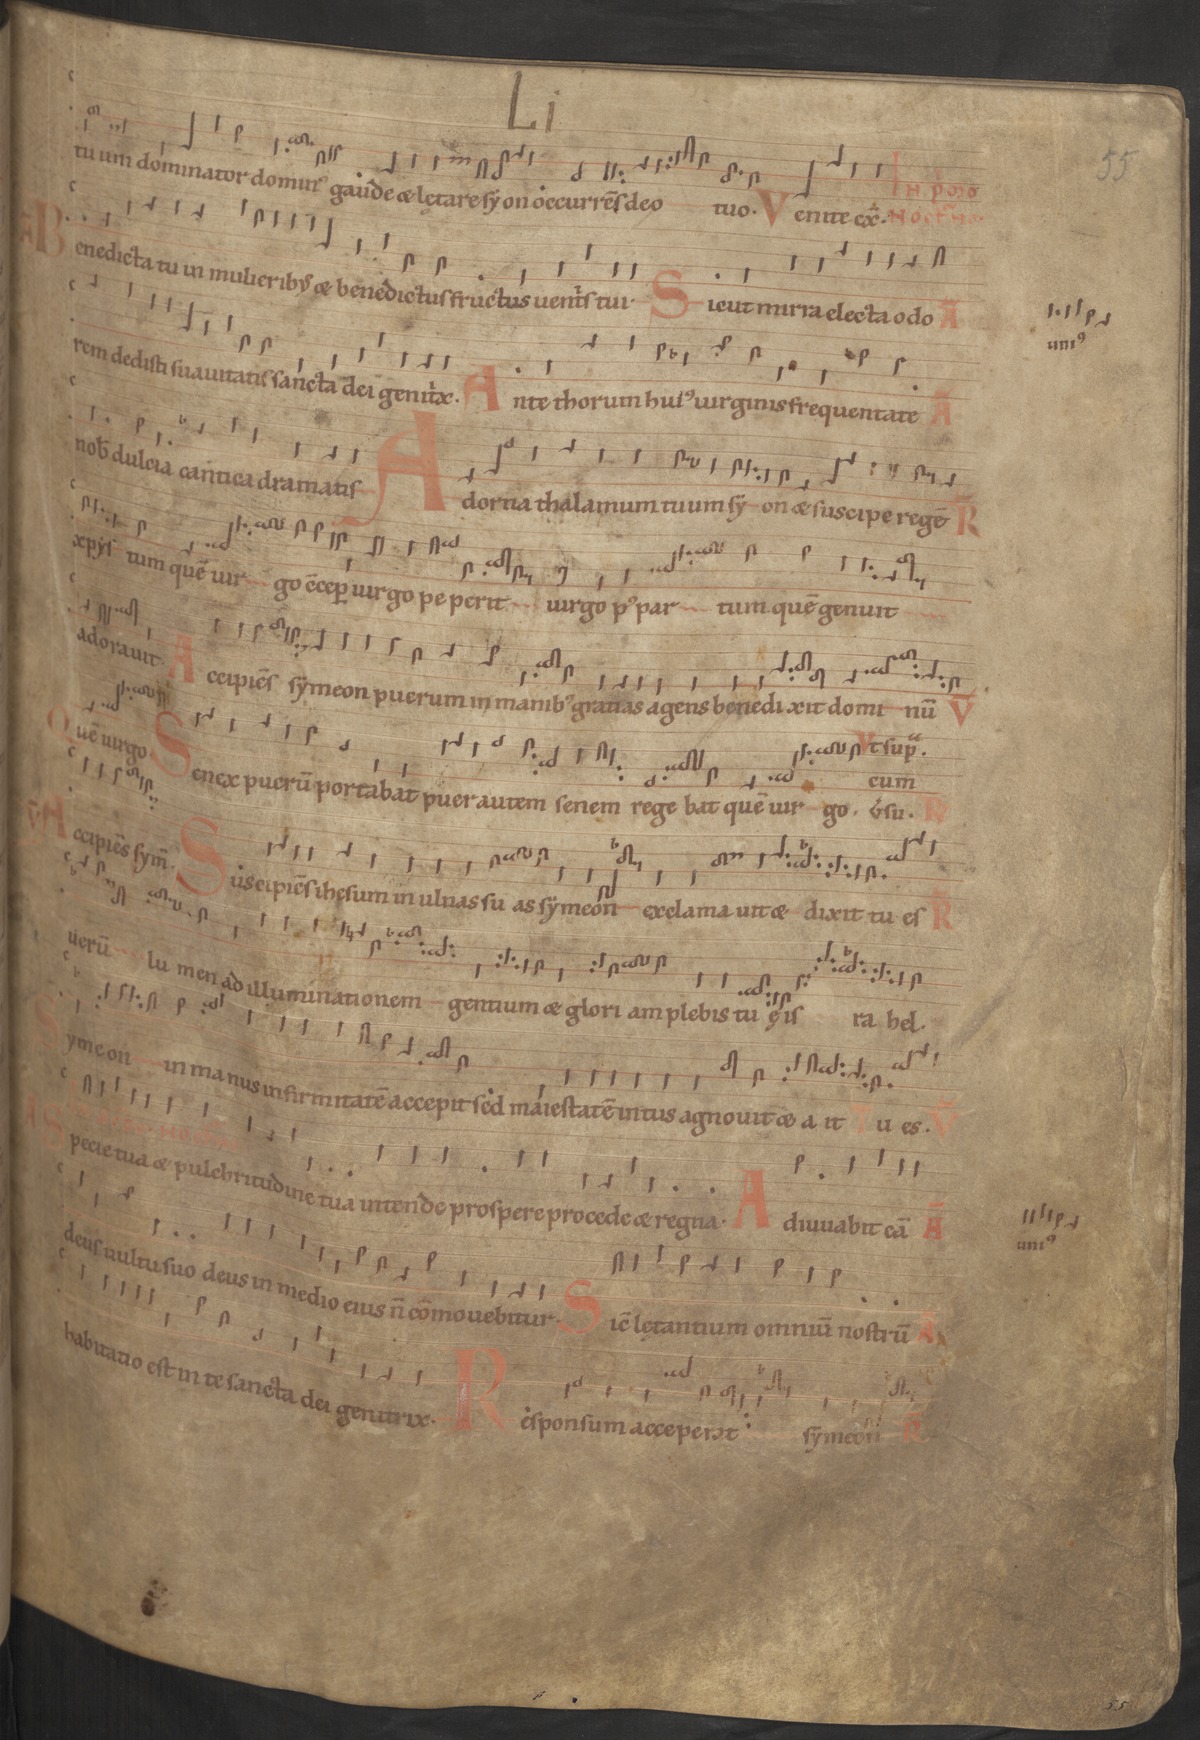 Li
55
tu um dominator domin⁹ gaude & lętare sẏon occurrēs deo tuo. Venite ex̄. In p̄mo
Benedicta tu in mulierib⁹ & benedictus fructus uent̄s tui. Sicut mirra electa odo Ā
rem dedisti suauitatis sancta dei genitx. Ante thorum hui⁹ uirginis frequentate Ā
nob̄ dulcia cantica dramatis Adorna thalamum tuum sẏ on & suscipe regē R̄
xp̄ys tum quē uir go ccep̄ uirgo peperit uirgo p⁹ par tum quē genuit
adorauit. Accipiēs sẏmeon puerum in manib⁹ gratias agens benedi xit domi nū V̄
Quē uirgo Senex puerū portabat puer autem senem rege bat quē uir go.
vt sup̄.
cum
Accipiēs sẏm̄. Suscipiēs ihesum in ulnas su as sẏmeon exclama uit & dixit tu es R̄
uerū lu men ad illuminationem gentium & glori am plebis tu ę is ra hel.
Sẏmeon in manus infirmitatē accepit sed maiestatē intus agnouit & a it Tu es. V̄
Specie tua & pulchritudine tua intende prospere procede & regna. Adiuuabit eā Ā
deus uultu suo deus in medio eius n̄ cōmouebitur. Sic̄ lętantium omniū nostrū Ā
habitatio est in te sancta dei genitrix. Responsum acceperat sẏmeon R̄
uni⁹
uni⁹
55